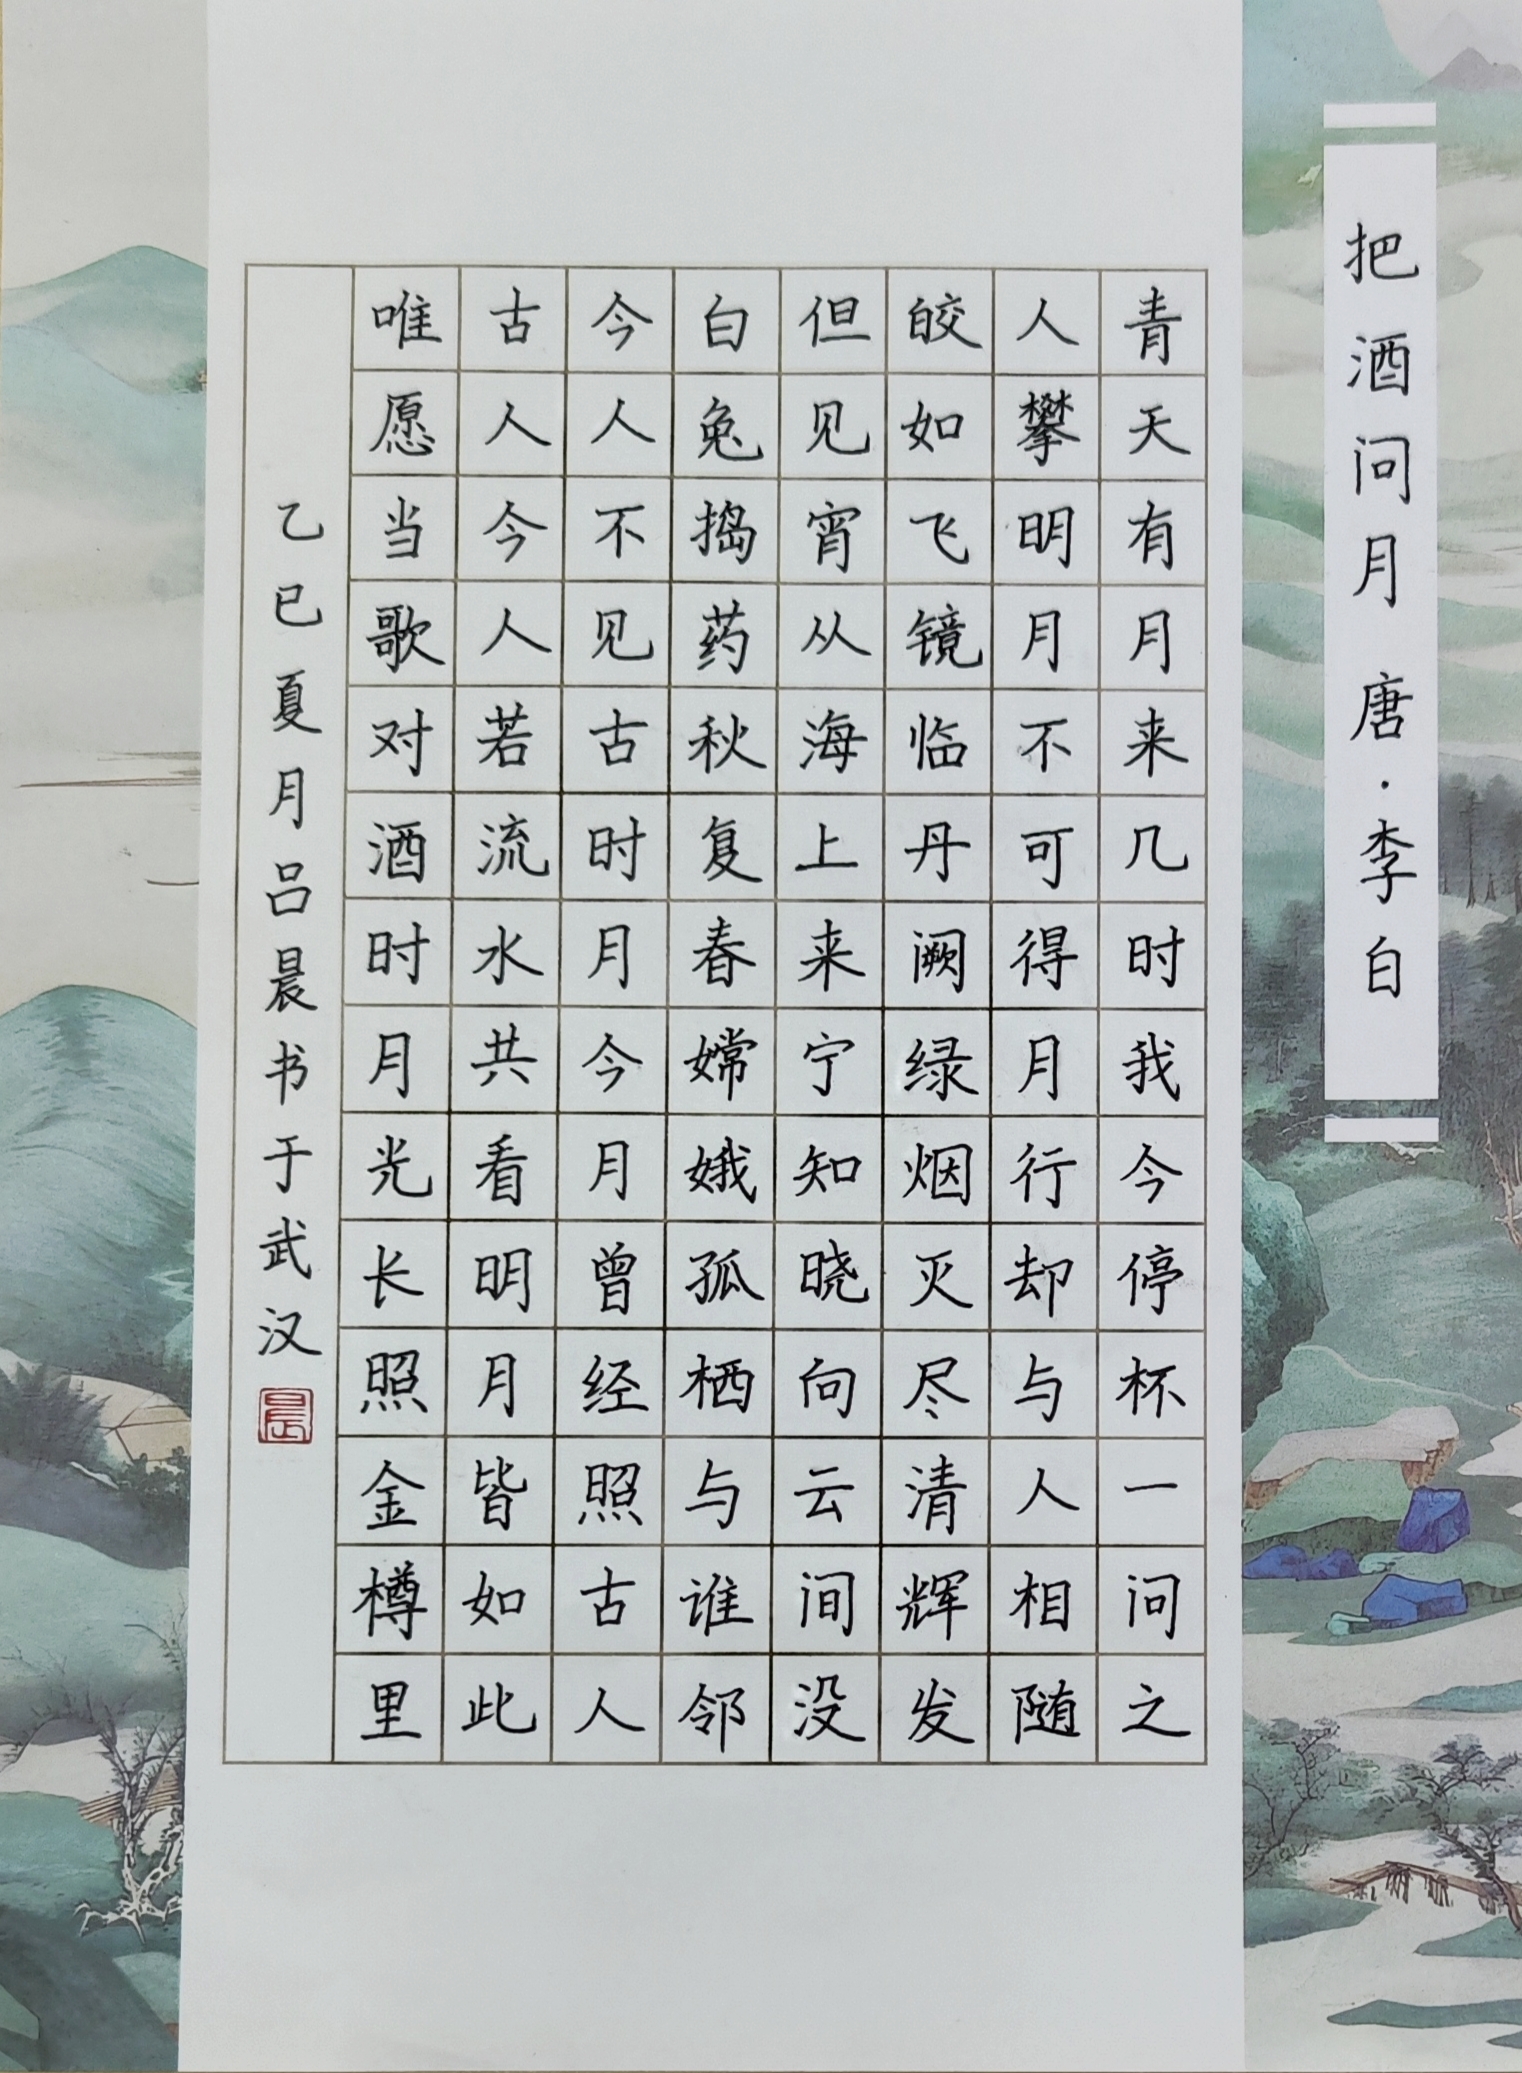 把酒问月 唐·李白
青天有月来几时我今停杯一问之
人攀明月不可得月行却与人相随
皎如飞镜临丹阙绿烟灭尽清辉发
但见宵从海上来宁知晓向云间没
白兔捣药秋复春嫦娥孤栖与谁邻
今人不见古时月今月曾经照古人
古人今人若流水共看明月皆如此
唯愿当歌对酒时月光长照金樽里
乙巳夏月吕晨书于武汉
晨